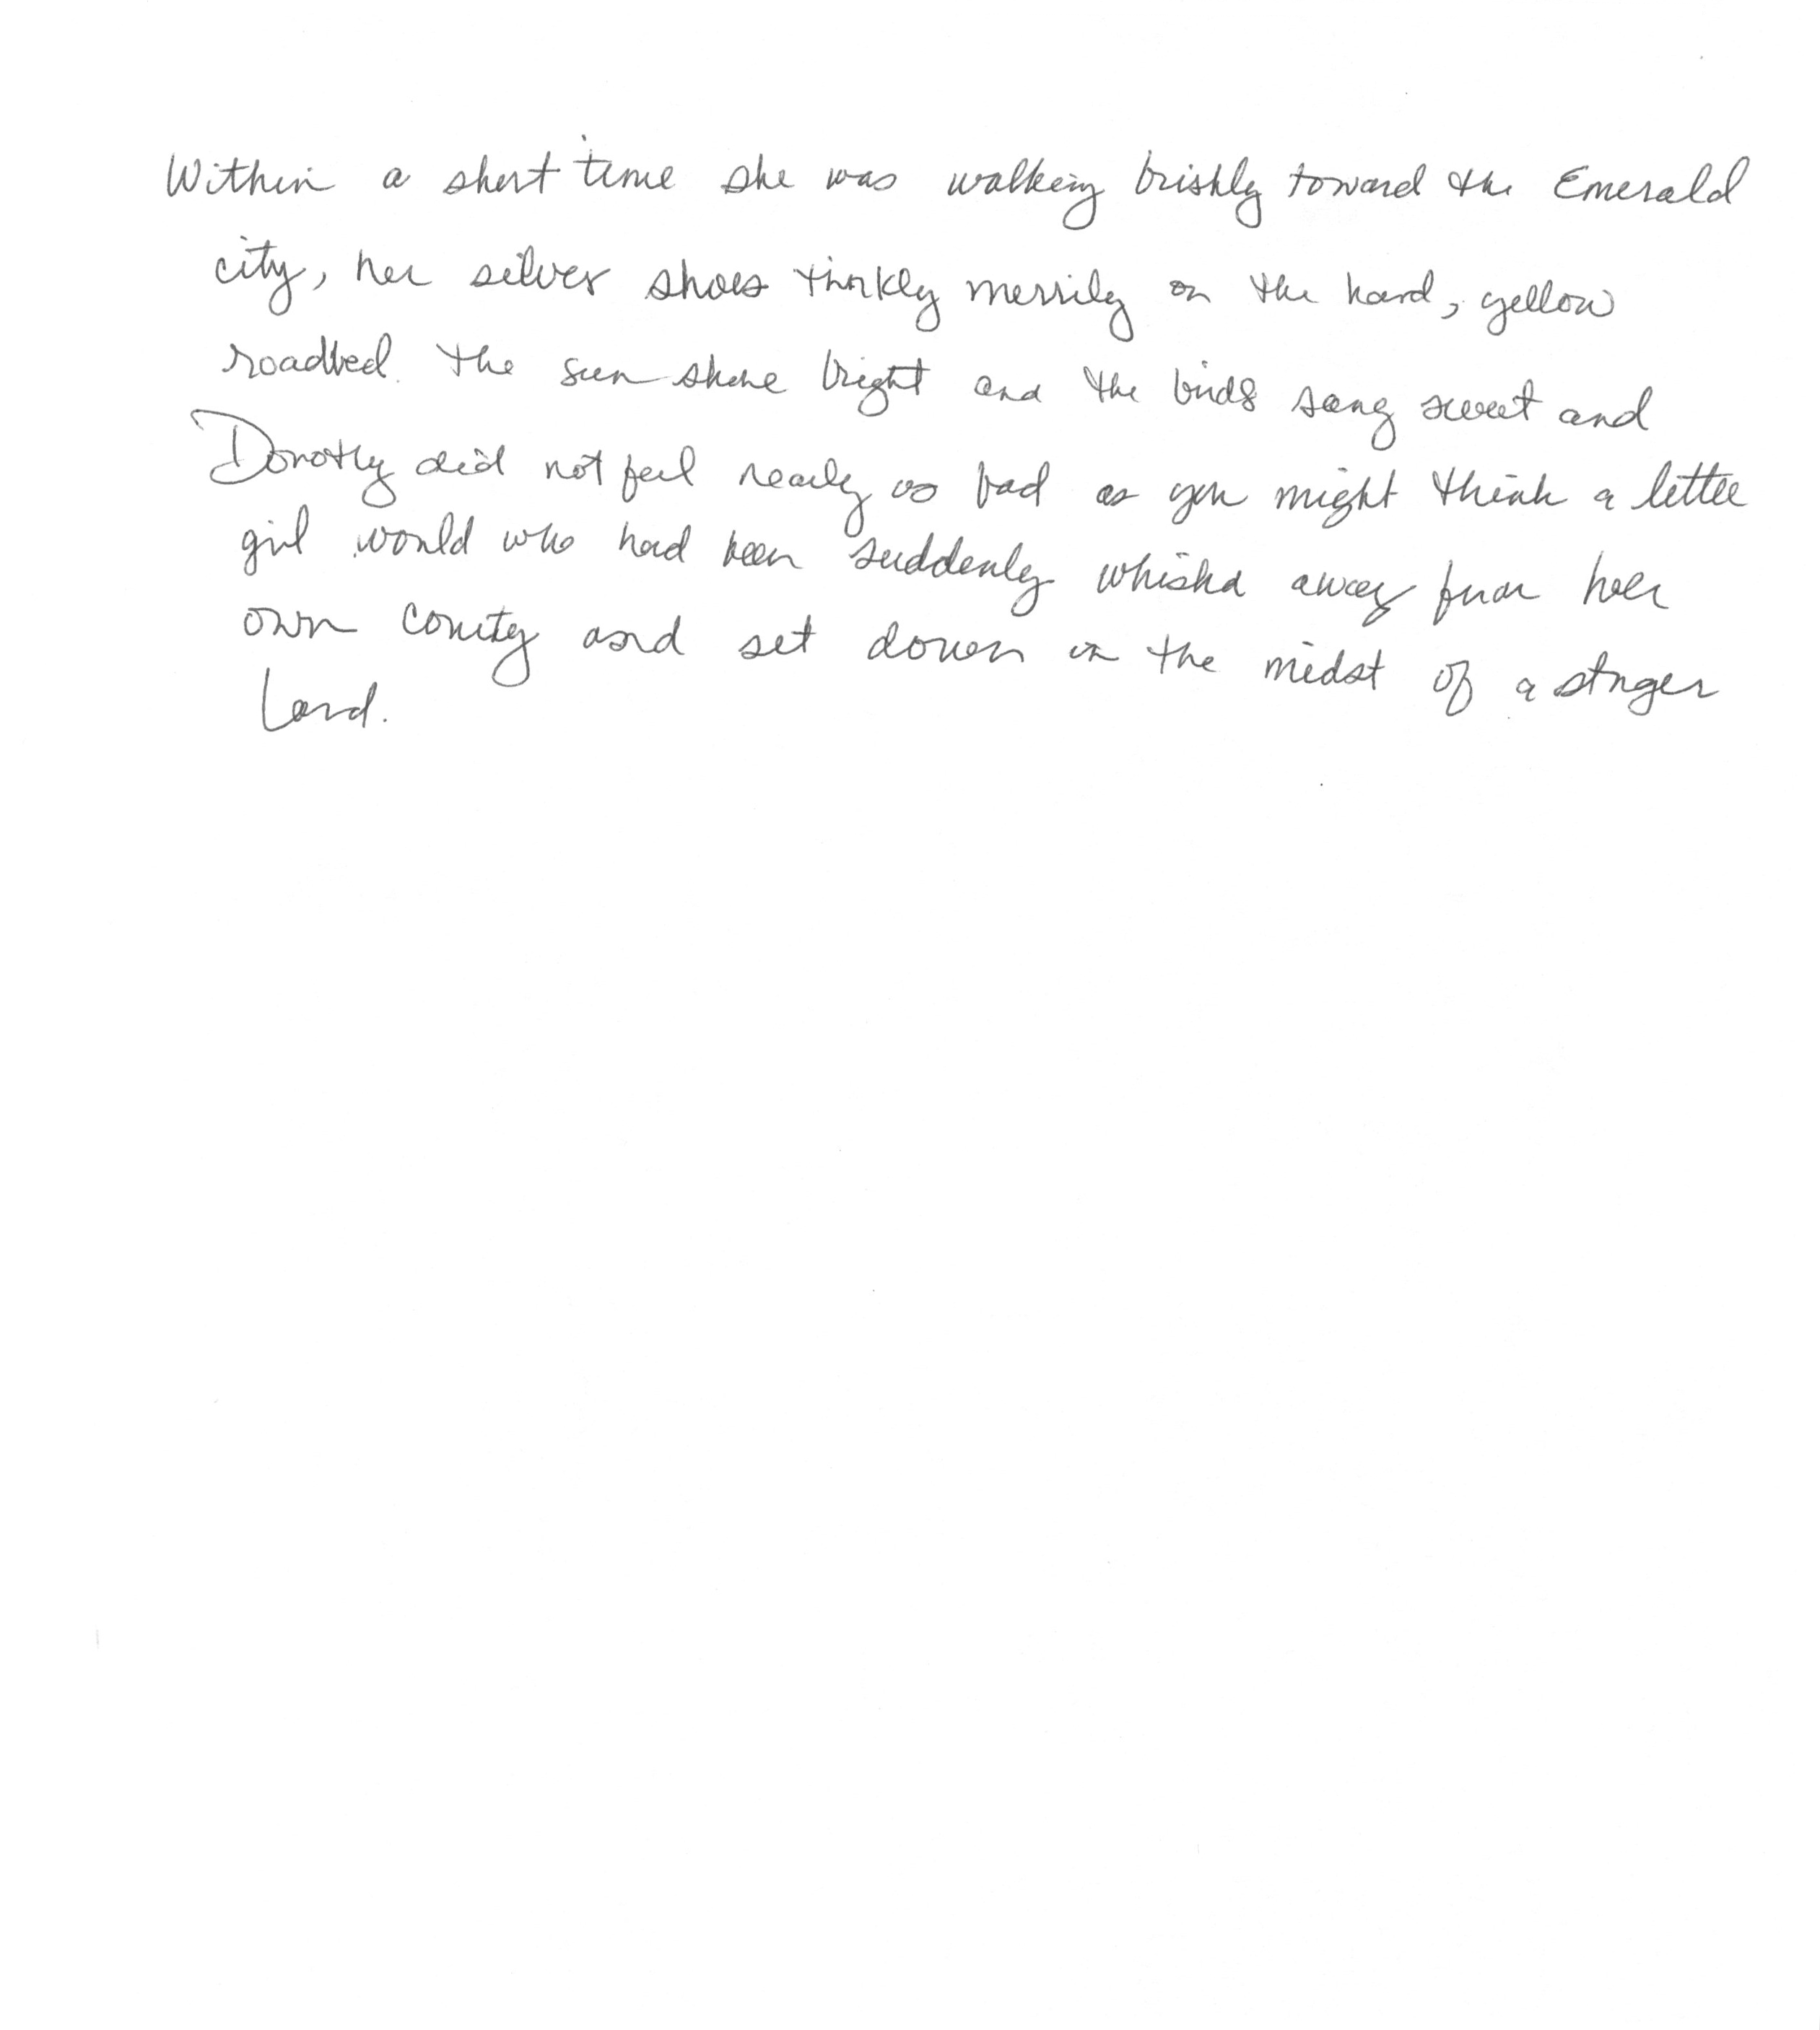 Within a short time she was walking briskly toward the Emerald
city, her silver shoes tinkly merrily on the hard, yellow
roadbed. the sun shone bright and the birds sang sweet and
Dorothy did not feel nearly so bad as you might think a little
girl would who had been suddenly whiskd away from her
own county and set down in the midst of a
land.